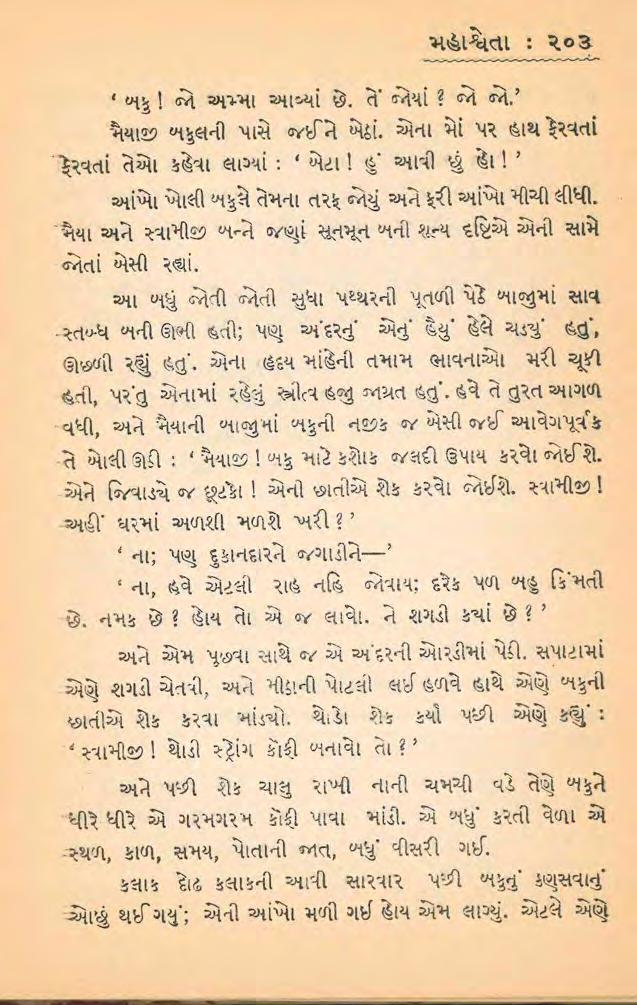 મહાશ્વેતા : ૨૦૩
‘ બકુ ! જો અમ્મા આવ્યાં છે. તેં જોયાં ? જો જો.’
મૈયાજી બકુલની પાસે જઈ ને બેઠાં. એના મોં પર હાથ ફેરવતાં
ફેરવતાં તેઓ કહેવા લાગ્યાં : ‘ બેટા ! હું આવી છું હો ! ’
આંખો ખોલી બકુલે તેમના તરફ જોયું અને ફરી આંખો મીચી લીધી.
મૈયા અને સ્વામીજી બન્ને જણાં સૂનમૂન બની શૂન્ય દષ્ટિએ એની સામે
જોતાં બેસી રહ્યાં.
આ બધું જોતી જોતી સુધા પથ્થરની પૂતળી પેઠે બાજુમાં સાવ
સ્તબ્ધ બની ઊભી હતી; પણ અંદરનું એનું હૈયું હેલે ચડયું હતું,
ઊછળી રહ્યું હતું. એના હૃદય માંહેની તમામ ભાવનાઓ મરી ચૂકી
હતી, પરંતુ એનામાં રહેલું સ્ત્રીત્વ હજી જાગ્રત હતું. હવે તે તુરત આગળ
વધી, અને મૈયાની બાજુમાં બકુની નજીક જ બેસી જઈ આવેગપૂર્વક
તે બોલી ઊઠી : ‘ મૈયાજી ! બકુ માટે કશોક જલદી ઉપાય કરવો જોઈશે.
એને જિવાડયે જ છૂટકો ! એની છાતીએ શેક કરવો જોઈશે. સ્વામીજી !
અહીં ઘરમાં અળશી મળશે ખરી ? ’
‘ ના; પણ દુકાનદારને જગાડીને—’
‘ ના, હવે એટલી રાહ નહિ જોવાય; દરેક પળ બહુ કિંમતી
છે. નમક છે ? હોય તો એ જ લાવો. ને શગડી કયાં છે ? ’
અને એમ પૂછવા સાથે જ એ અંદરની ઓરડીમાં પેઠી. સપાટામાં
એણે શગડી ચેતવી, અને મીઠાની પોટલી લઈ હળવે હાથે એણે બકુની
છાતીએ શેક કરવા માંડયો. થોડો શેક કર્યા પછી એણે કહ્યું :
‘ સ્વામીજી ! થોડી સ્ટ્રોંગ કૉફી બનાવો તો ? ’
અને પછી શેક ચાલુ રાખી નાની ચમચી વડે તેણે બકુને
ધીરે ધીરે એ ગરમગરમ કૉફી પાવા માંડી. એ બધું કરતી વેળા એ
સ્થળ, કાળ, સમય, પોતાની જાત, બધું વીસરી ગઈ.
કલાક દોઢ કલાકની આવી સારવાર પછી બકુનું કણસવાનું
ઓછું થઈ ગયું; એની આંખો મળી ગઈ હોય એમ લાગ્યું. એટલે એણે